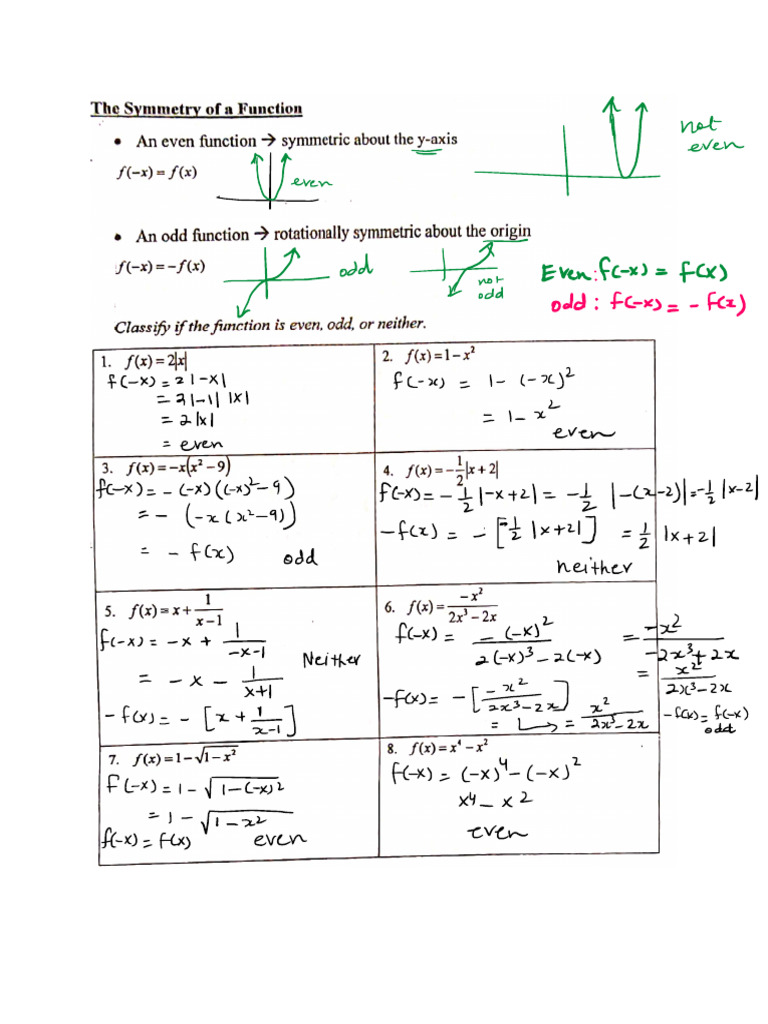 The Symmetry of a Function
• An even function → symmetric about the y-axis
f(-x) = f(x)
even
not
even
• An odd function → rotationally symmetric about the origin
f(-x) = -f(x)
odd
not
odd
Even: f(-x) = f(x)
odd : f(-x) = - f(x)
Classify if the function is even, odd, or neither.
1. f(x) = 2|x|
f(-x) = 2|-x|
= 2|-1| |x|
= 2|x|
= even
2. f(x) = 1 - x²
f(-x) = 1 - (-x)²
= 1 - x²
even
3. f(x) = -x(x² - 9)
f(-x) = - (-x) ((-x)² - 9)
= - (-x (x² - 9))
= - f(x) odd
4. f(x) = -1/2 |x + 2|
f(-x) = -1/2 |-x + 2| = -1/2 |-(x-2)| = -1/2 |x-2|
-f(x) = - [-1/2 |x+2|] = 1/2 |x+2|
neither
5. f(x) = x + 1/(x-1)
f(-x) = -x + 1/(-x-1)
Neither
= -x - 1/(x+1)
-f(x) = - [x + 1/(x-1)]
6. f(x) = -x²/(2x³ - 2x)
f(-x) = -(-x)²/(2(-x)³ - 2(-x)) = -x²/(-2x³ + 2x)
= x²/(2x³ - 2x)
-f(x) = - [-x²/(2x³ - 2x)]
= ↳ = x²/(2x³ - 2x)
-f(x) = f(-x)
odd
7. f(x) = 1 - √(1 - x²)
f(-x) = 1 - √(1 - (-x)²)
= 1 - √(1 - x²)
f(-x) = f(x) even
8. f(x) = x⁴ - x²
f(-x) = (-x)⁴ - (-x)²
x⁴ - x²
even